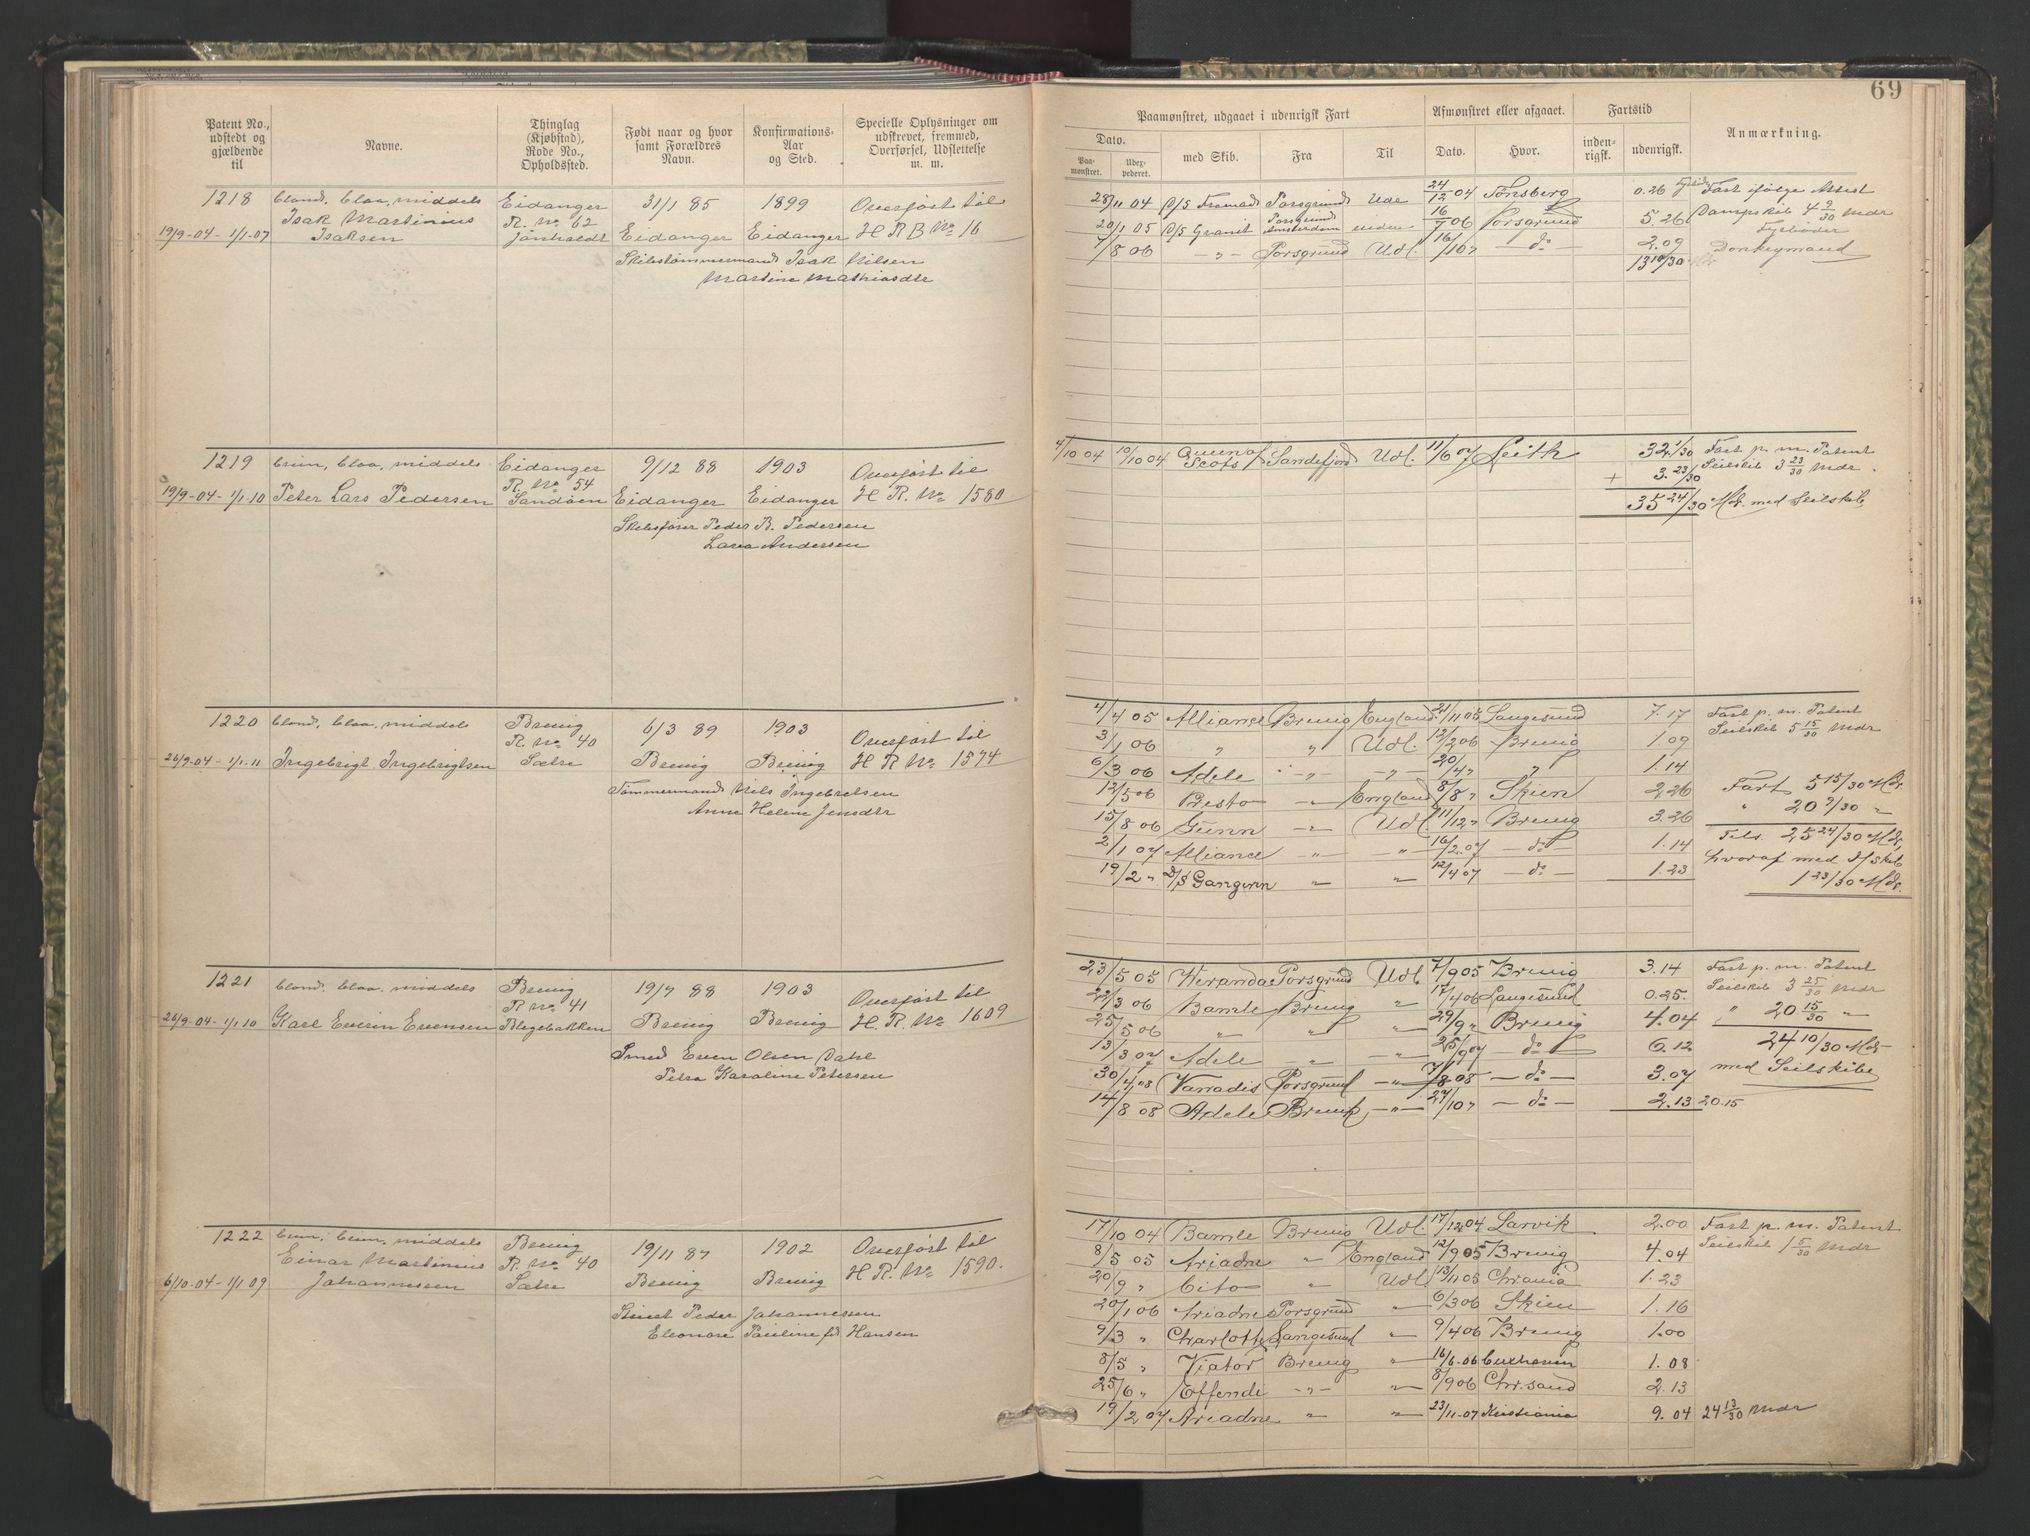 69
Patent No., udstedt og gjældende til
Navne.
Thinglag (Kjøbstad), Rode No., Opholdssted.
Født naar og hvor samt Forældres Navn.
Konfirmations-Aar og Sted.
Specielle Oplysninger om udskrevet, fremmed, Overførsel, Udslettelse m. m.
Paamønstret, udgaaet i udenrigsk Fart
Afmønstret eller afgaaet.
Fartstid
Anmærkning.
Dato.
Paamønstret.
Udexpederet.
med Skib.
Fra
Til
Dato.
Hvor.
indenrigsk.
udenrigsk.
1218 blond, blaa, middels Eidanger 31/1 85 1899 Overført til
Isak Martinius R. No 62
19/9-04-1/1-07 Isaksen Jönholdt Eidanger Eidanger H R B No 16
Skibstømmermand Isak Nilsen
Martine Mathiasdtr
28/11 04 D/S Fremad Porsgrund Udl 24/12 04 Tönsberg 0.26 Fart ifølge Attest
20/1 05 D/S Granit Porsgrund Amsterdam videre 16/7 06 Porsgrund 5 26 Dampskib 4 9/30 Mdr
Fyrbøder
7/8 06 -„- Porsgrund Udl. 16/10„ -do- 2.09 Donkeymand
13 10/30
1219 brun, blaa, middels Eidanger 9/12 88 1903 Overført til
R. No 54
19/9-04-1/1-10 Peter Lars Pedersen Sandöen Eidanger Eidanger H R. No 1580
Skibsfører Peder B. Pedersen
Lara Andersen
4/10 04 10/10 04 Queen of Scots Sandefjord Udl. 11/6 07 Leith 32 1/30 Fart p. m. Patent
+ 3 23/30 Seilskib 3 23/30 Mdr.
35 24/30 Md. med Seilskib
1220 blond, blaa, middels Brevig 6/3 89 1903 Overført til
R. No 40
26/9-04-1/1-11 Ingebrigt Ingebrigtsen Sætre Brevig Brevig H R No 1574
Tømmermand Nils Ingebretsen
Anne Helene Jensdtr
4/4 05 Alliance Brevig England 21/11 05 Langesund 7.17 Fart p. m. Patent
Seilskib 5 15/30 Mdr
3/1 06 „ „ Udl. 12/2 06 Brevig 1.09
6/3 06 Adele -„- -„- 20/4„ „ 1.14
12/5 06 Presto -„- England 8/8„ Skien 2.26 Fart 5 15/30 Md.
15/8 06 Gunn -„- Udl. 11/12„ Brevig 3.26 „ 20 9/30 „
2/1 07 Alliance -„- „ 16/2.07 -do- 1.14 Tils. 25 24/30 Md,
19/2„ D/S Gangerin „ „ 12/4 07 -do- 1.23 hvoraf med D/Skib
1 23/30 Md.
1221 blond, blaa, middels Brevig 19/7 88 1903 Overført til
R No 41
26/9-04-1/1-10 Karl Everin Evensen Blegebakken Brevig Brevig H. R. No 1609
Smed Even Olsen Dahl
Petra Karoline Petersen
23/5 05 Weranda Porsgrund Udl. 7/9 05 Brevig 3.14 Fart p. m. Patent
Seilskib 3 25/30 Mdr
22/3 06 Bamle Brevig „ 17/4 06 Langesund 0.25. „ 20 15/30 „
25/5 06 „ „ „ 29/9„ Brevig 4.04 24 10/30 Md
13/3 07 Adele -„- -„- 25/9 07 -do- 6.12 med Seilskibe
30/4 08 Vanadis Porsgrund -„- 7/8 08 -do- 3.07
14/8 08 Adele Brevig -„- 27/10„ -do- 2.13 20.15
1222 brun, brun, middels Brevig 19/11 87 1902 Overført til
Einar Martinius R. No 40
6/10-04-1/1 09 Johannessen Sætre Brevig Brevig H R. No 1590.
Stuert Peder Johannessen
Eleonore Pauline fd Hansen
17/10 04 Bamle Brevig Udl. 17/12 04 Larvik 2.00 Fart p. m. Patent
Seilskib 1 5/30 Mdr
8/5 05 Ariadne „ England 12/9 05 Brevig 4.04
20/9 „ Cito „ Udl. 13/11 05 Chrania 1.23
20/1 06 Ariadne Porsgrund „ 6/3 06 Skien 1.16
9/3 „ Charlotte Langesund „ 9/4 06 Brevig 1.00
8/5 „ Viator Brevig „ 16/6-06 Cuxhaven 1.08
25/6 „ Effendi -„- „ 8/9 06 Chr.sand 2.13
19/2 07 Ariadne „ „ 23/11-07 Kristiania 9.04 24 13/30 Mdr